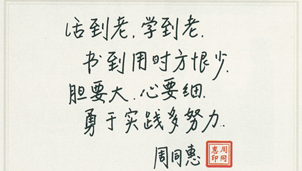 活到老,学到老.
书到用时方恨少.
胆要大、心要细.
勇于实践多努力.
周同惠
周同惠印